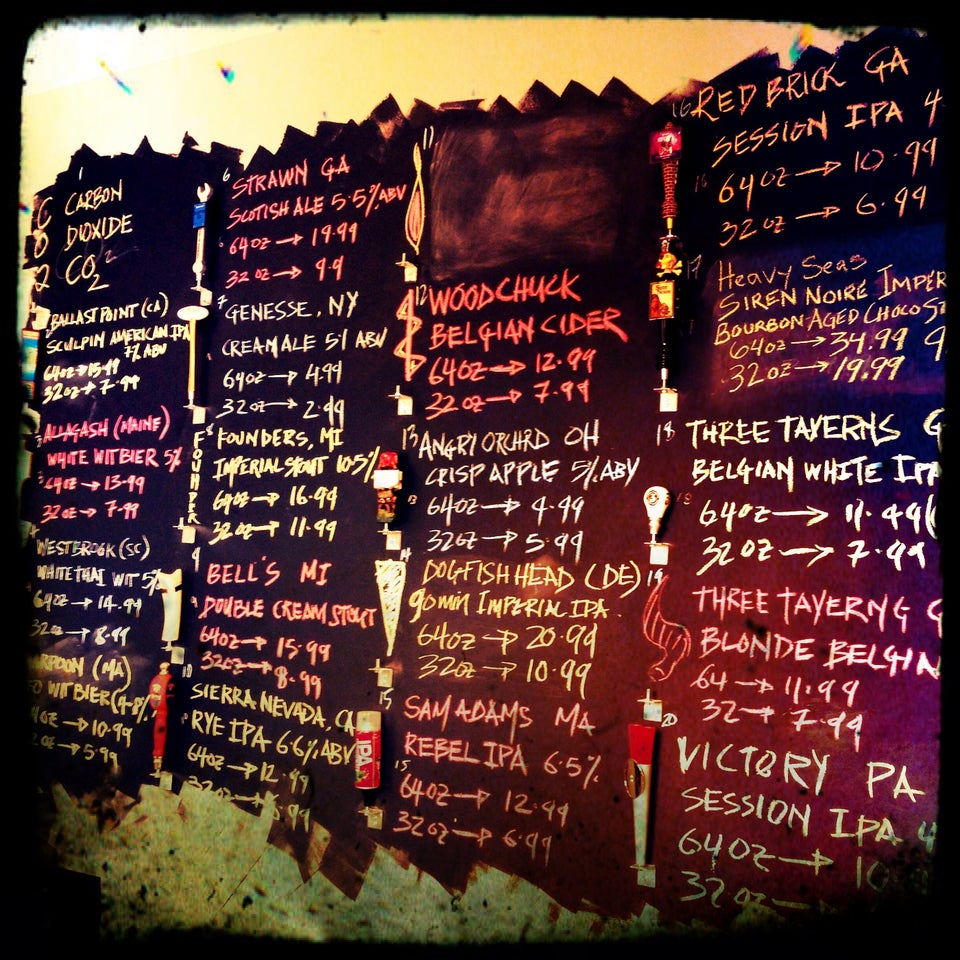 1
CARBON
DIOXIDE
CO2
CO2
BALLAST POINT (CA)
SCULPIN AMERICAN IPA
7% ABV
64oz → 15.99
32oz → 7.99
3 ALLAGASH (MAINE)
WHITE WITBIER 5%
64oz → 13.99
32oz → 7.99
WESTBROOK (SC)
WHITE THAI WIT 5%
64oz → 14.99
32oz → 8.99
(MA)
WITBIER
→ 10.99
→ 5.99
6 STRAWN GA
SCOTISH ALE 5.5% ABV
64oz → 19.99
32oz → 9.9
7 GENESSE, NY
CREAM ALE 5.1 ABV
64oz → 4.99
32oz → 2.49
FOUNDER
8 FOUNDERS, MI
IMPERIAL STOUT 10.5%
64oz → 16.99
32oz → 11.99
9
BELL'S MI
9 DOUBLE CREAM STOUT
64oz → 15.99
32oz → 8.99
10
SIERRA NEVADA, CA
RYE IPA 6.6% ABV
64oz → 12.99
32oz → 6.99
11
12 WOODCHUCK
BELGIAN CIDER
64oz → 12.99
32oz → 7.99
13 ANGRY ORCHRD OH
CRISP APPLE 5% ABV
13 64oz → 4.99
32oz → 5.99
14
DOGFISH HEAD (DE)
90 min IMPERIAL IPA.
64oz → 20.99
32oz → 10.99
15
SAM ADAMS MA
REBEL IPA 6.5%
IPA
15
64oz → 12.99
32oz → 6.99
16 RED BRICK GA
SESSION IPA 4
16 64oz → 10.99
32oz → 6.99
17 Heavy Seas
SIREN NOIRE IMPER
BOURBON AGED CHOCO ST
64oz → 34.99 9
32oz → 19.99
18 THREE TAVERNS G
BELGIAN WHITE IPA
18 64oz → 11.49
32oz → 7.99
19 THREE TAVERNG G
BLONDE BELGIAN
64 → 11.99
32 → 7.99
20
VICTORY PA
SESSION IPA 4
64oz → 10
32oz →